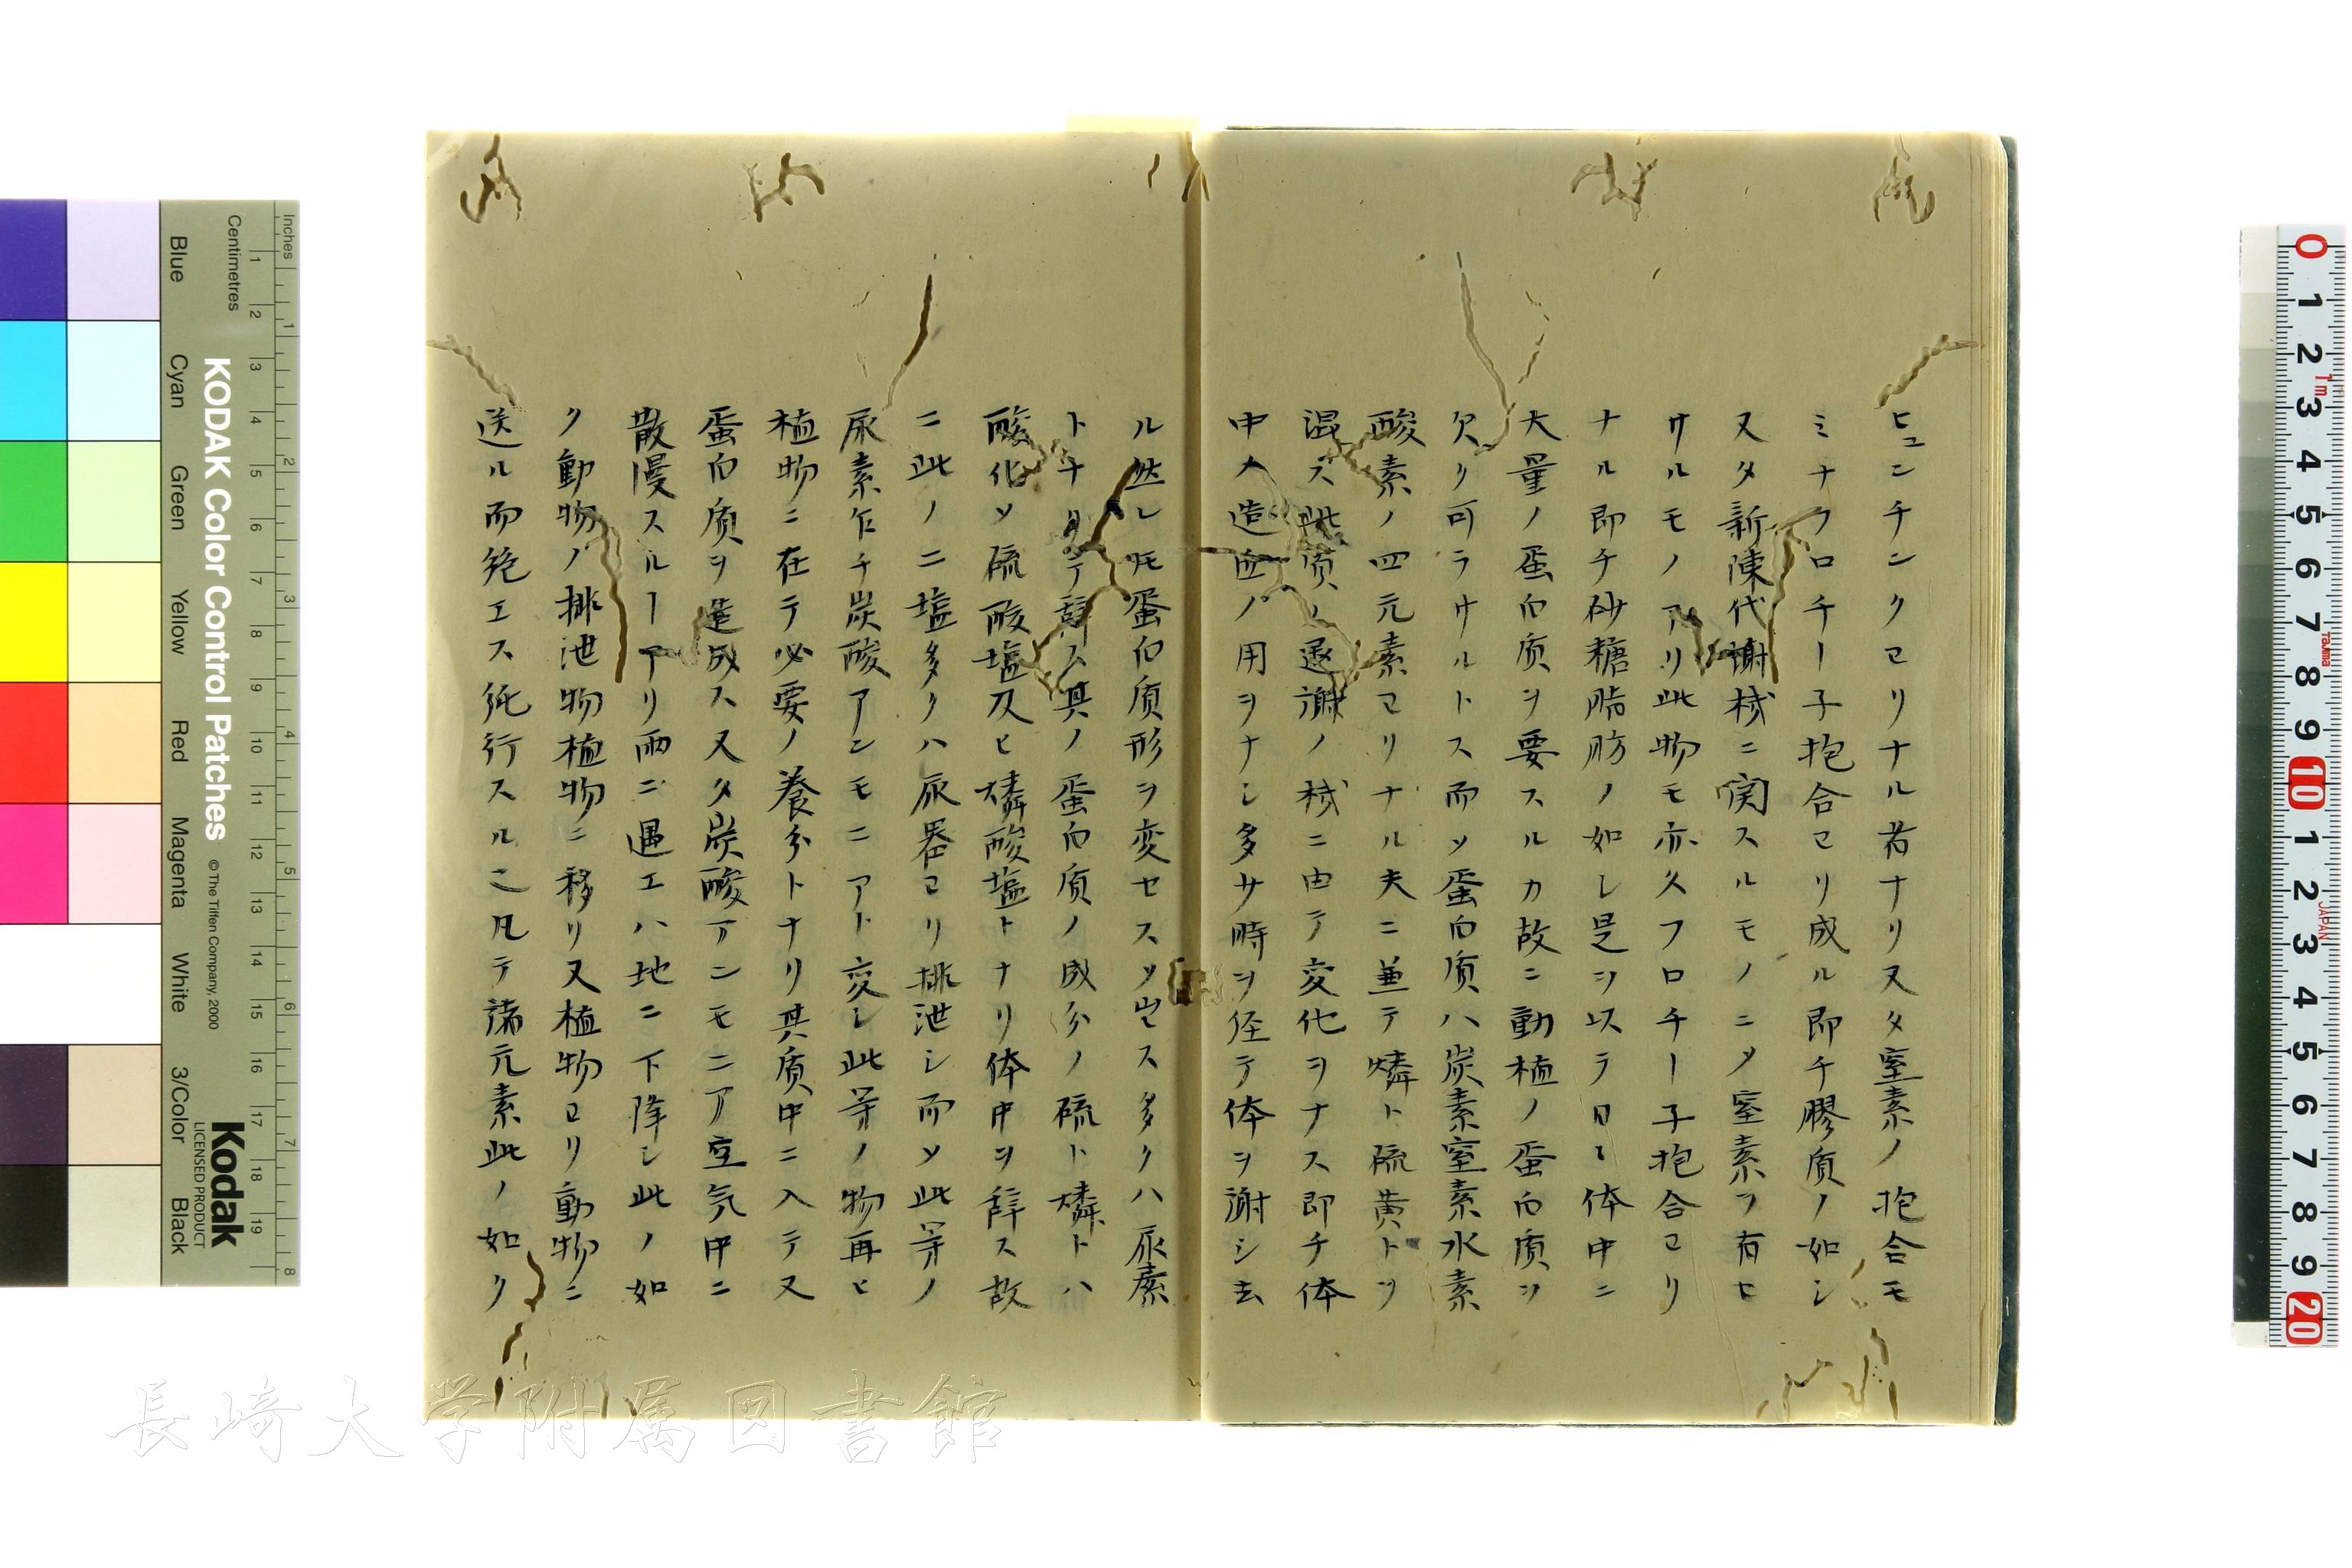 ヒュンチンクヨリナル者ナリ又タ窒素ノ抱合モ
ミナフロチー子抱合ヨリ成ル即チ膠质ノ如シ
又タ新陳代謝棫ニ関スルモノニメ窒素ヲ有セ
サルモノアリ此物モ亦久フロチー子抱合ヨリ
ナル即チ砂糖脂肪ノ如シ是ヲ以テ日々体中ニ
大量ノ蛋白质ヲ要スルカ故ニ動植ノ蛋白质ヲ
欠リ可ラサルトス而ソ蛋白质ハ炭素窒素水素
酸素ノ四元素ヨリナル夫ニ兼テ燐ト硫黄トヲ
混ス此质ノ逐謝ノ棫ニ由テ変化ヲナス即チ体
中ノ造血ノ用ヲナシ多少時ヲ径テ体ヲ謝シ去
ル然レ𪜈蛋白质形ヲ変セスソ出ス多クハ尿素
トナリテ辞ス其ノ蛋白质ノ成分ノ硫ト燐トハ
酸化ソ硫酸塩及ヒ燐酸塩トナリ体中ヲ辞ス故
ニ此ノ二塩多クハ尿器ヨリ排泄シ而ソ此等ノ
尿素乍チ炭酸アンモニアト変シ此等ノ物再ヒ
植物ニ在テ必要ノ養分トナリ其质中ニ入テ又
蛋白质ヲ造成ス又タ炭酸アンモニア空気中ニ
散漫スルーアリ雨ニ遇エハ地ニ下降シ此ノ如
ク動物ノ排泄物植物ニ移リ又植物ヨリ動物ニ
送ル而絶エス循行スルニ凡テ諸元素此ノ如ク
KODAK Color Control Patches
© The Tiffen Company, 2000
Kodak
LICENSED PRODUCT
Inches
Centimetres
Blue
Cyan
Green
Yellow
Red
Magenta
White
3/Color
Black
長崎大学附属図書館